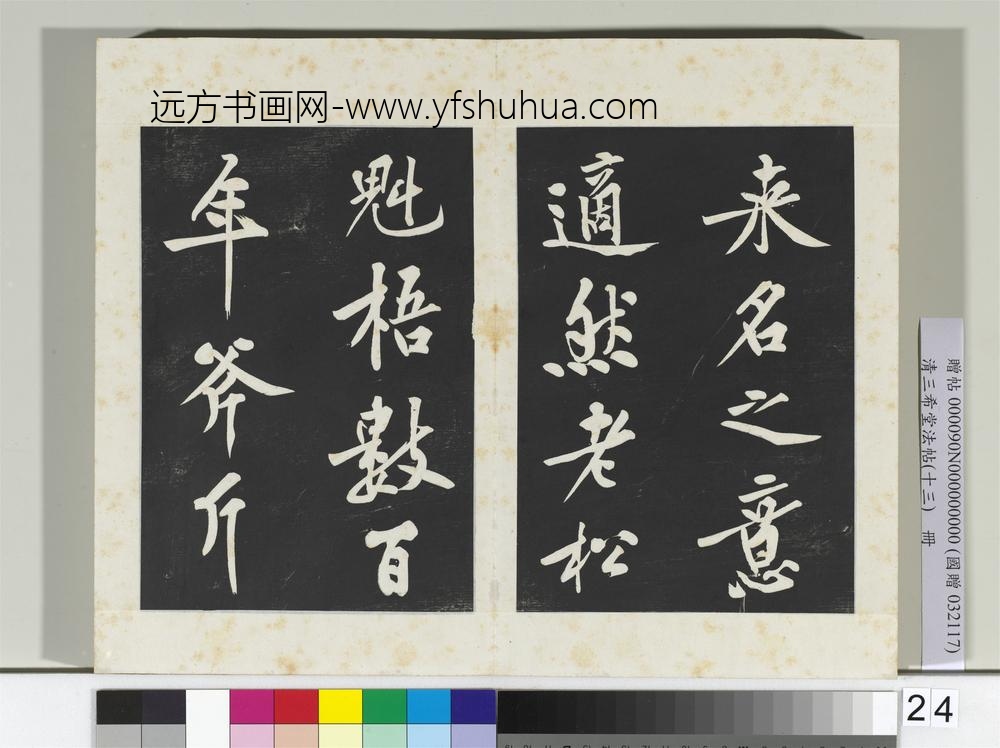 远方书画网-www.yfshuhua.com
来名之意
適然老松
魁梧數百
年斧斤
贈帖 000090N000000000 (國贈 032117)
清三希堂法帖(十三) 冊
24